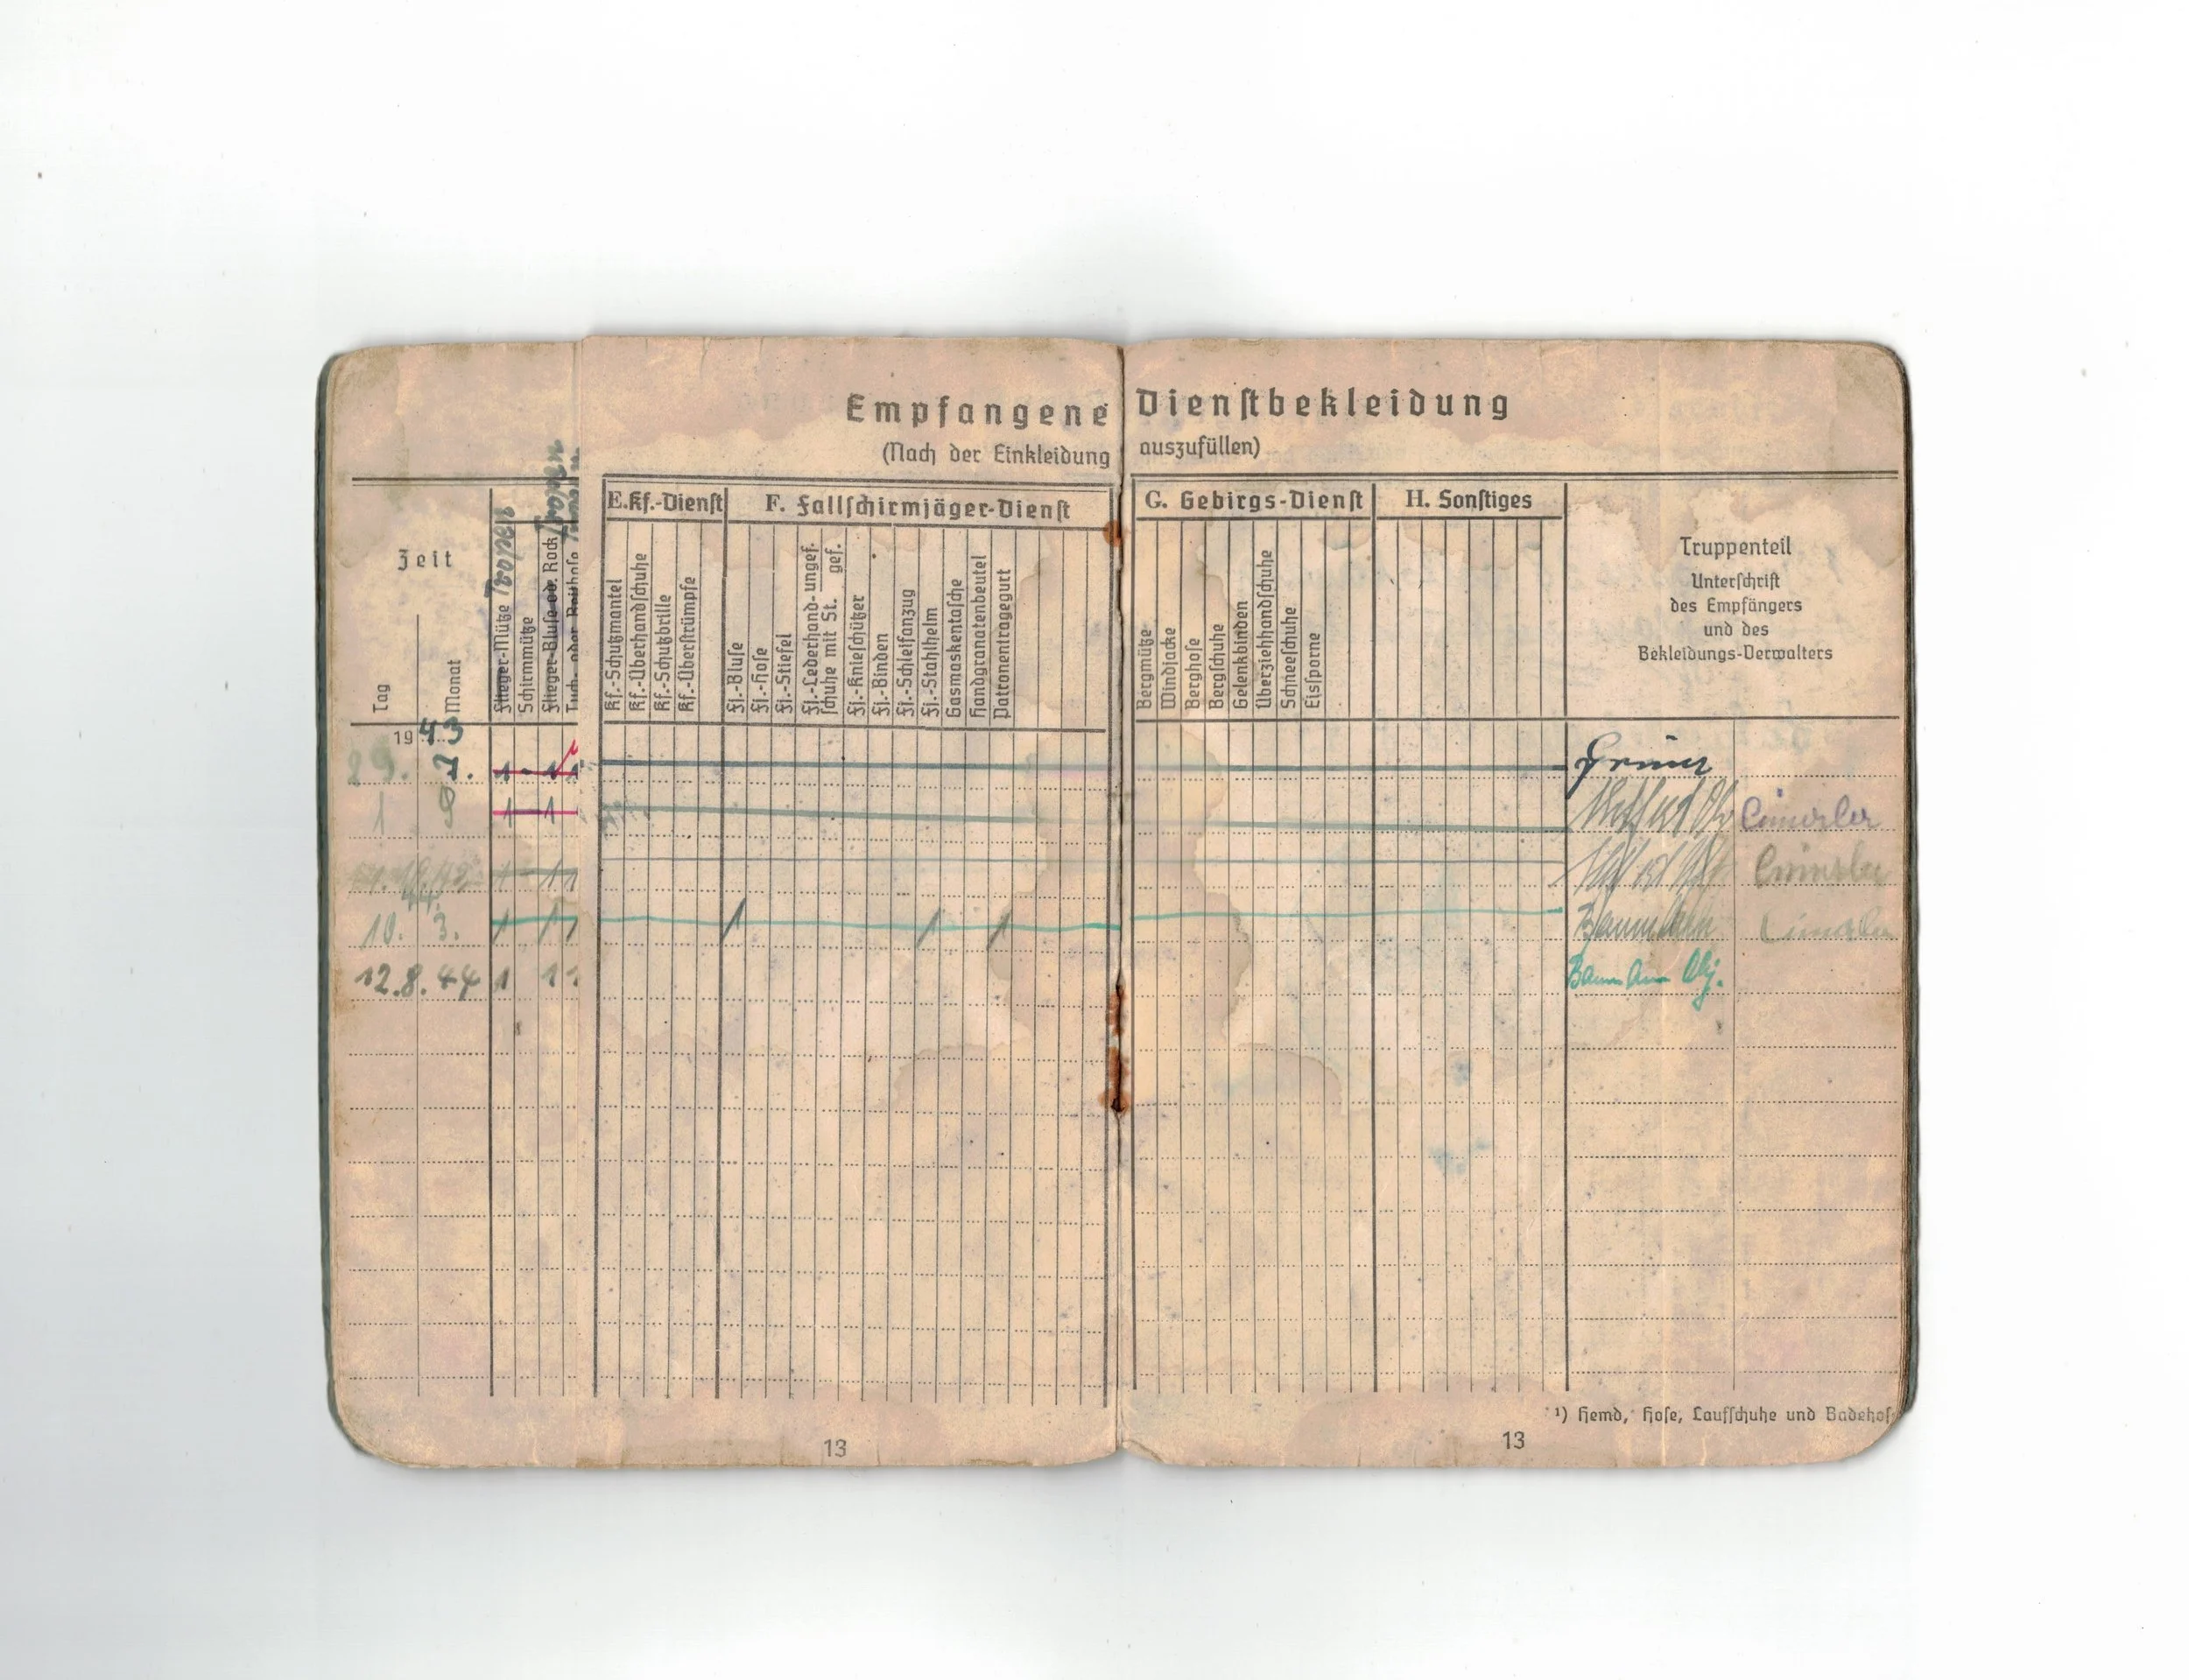 Empfangene Dienstbekleidung
(Nach der Einkleidung auszufüllen)
E.Kf.-Dienst F. Fallschirmjäger-Dienst G. Gebirgs-Dienst H. Sonstiges
Zeit
Tag
Monat
Flieger-Mütze
Schirmmütze
Flieger-Bluse od. Rock
Tuch- oder Reithose
Kf.-Schutzmantel
Kf.-Überhandschuhe
Kf.-Schutzbrille
Kf.-Überstrümpfe
Fj.-Bluse
Fj.-Hose
Fj.-Stiefel
Fj.-Lederhand- ungef.
schuhe mit St. gef.
Fj.-Knieschützer
Fj.-Binden
Fj.-Schleifanzug
Fj.-Stahlhelm
Gasmaskentasche
Handgranatenbeutel
Patronentragegurt
Bergmütze
Windjacke
Berghose
Bergschuhe
Gelenkbinden
Überziehhandschuhe
Schneeschuhe
Eissporne
Truppenteil
Unterschrift
des Empfängers
und des
Bekleidungs-Verwalters
1943
29. 7. 1 - 1 1
1 9 1 - 1
1 1 1
44
10. 3. 1 1 1 1 1 1 Baumann
12.8.44 1 1 1 Baumann Obj.
¹) Hemd, Hose, Laufschuhe und Badehos
13 13